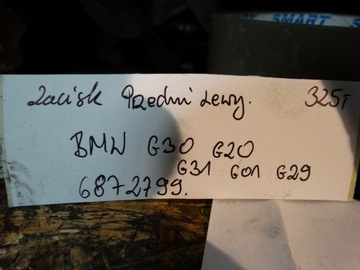 SMART
Zacisk Przedni Lewy. 325T
BMW G30 G20
G31 G01 G29
6872799.